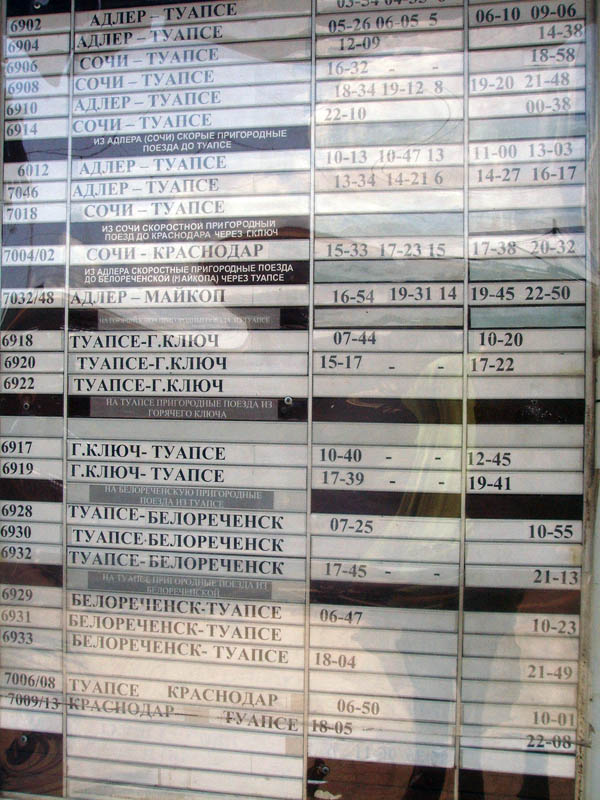 6902 АДЛЕР – ТУАПСЕ 05-26 06-05 5 06-10 09-06
6904 АДЛЕР – ТУАПСЕ 12-09 14-38
6906 СОЧИ – ТУАПСЕ 16-32 - - 18-58
6908 СОЧИ – ТУАПСЕ 18-34 19-12 8 19-20 21-48
6910 АДЛЕР – ТУАПСЕ 22-10 00-38
6914 СОЧИ – ТУАПСЕ
ИЗ АДЛЕРА (СОЧИ) СКОРЫЕ ПРИГОРОДНЫЕ
ПОЕЗДА ДО ТУАПСЕ
6012 АДЛЕР – ТУАПСЕ 10-13 10-47 13 11-00 13-03
7046 АДЛЕР – ТУАПСЕ 13-34 14-21 6 14-27 16-17
7018 СОЧИ – ТУАПСЕ
ИЗ СОЧИ СКОРОСТНОЙ ПРИГОРОДНЫЙ
ПОЕЗД ДО КРАСНОДАРА ЧЕРЕЗ Г.КЛЮЧ
7004/02 СОЧИ - КРАСНОДАР 15-33 17-23 15 17-38 20-32
ИЗ АДЛЕРА СКОРОСТНЫЕ ПРИГОРОДНЫЕ ПОЕЗДА
ДО БЕЛОРЕЧЕНСКОЙ (МАЙКОПА) ЧЕРЕЗ ТУАПСЕ
7032/48 АДЛЕР – МАЙКОП 16-54 19-31 14 19-45 22-50
НА ГОРЯЧИЙ КЛЮЧ ПРИГОРОДНЫЕ ПОЕЗДА ИЗ ТУАПСЕ
6918 ТУАПСЕ-Г.КЛЮЧ 07-44 10-20
6920 ТУАПСЕ-Г.КЛЮЧ 15-17 - - 17-22
6922 ТУАПСЕ-Г.КЛЮЧ
НА ТУАПСЕ ПРИГОРОДНЫЕ ПОЕЗДА ИЗ
ГОРЯЧЕГО КЛЮЧА
6917 Г.КЛЮЧ- ТУАПСЕ 10-40 - - 12-45
6919 Г.КЛЮЧ- ТУАПСЕ 17-39 - - 19-41
НА БЕЛОРЕЧЕНСКУЮ ПРИГОРОДНЫЕ
ПОЕЗДА ИЗ ТУАПСЕ
6928 ТУАПСЕ-БЕЛОРЕЧЕНСК 07-25 10-55
6930 ТУАПСЕ-БЕЛОРЕЧЕНСК
6932 ТУАПСЕ-БЕЛОРЕЧЕНСК 17-45 - - 21-13
НА ТУАПСЕ ПРИГОРОДНЫЕ ПОЕЗДА ИЗ
БЕЛОРЕЧЕНСКОЙ
6929 БЕЛОРЕЧЕНСК-ТУАПСЕ 06-47 10-23
6931 БЕЛОРЕЧЕНСК-ТУАПСЕ
6933 БЕЛОРЕЧЕНСК- ТУАПСЕ 18-04 21-49
7006/08 ТУАПСЕ КРАСНОДАР 06-50 10-01
7009/13 КРАСНОДАР ТУАПСЕ 18-05 22-08